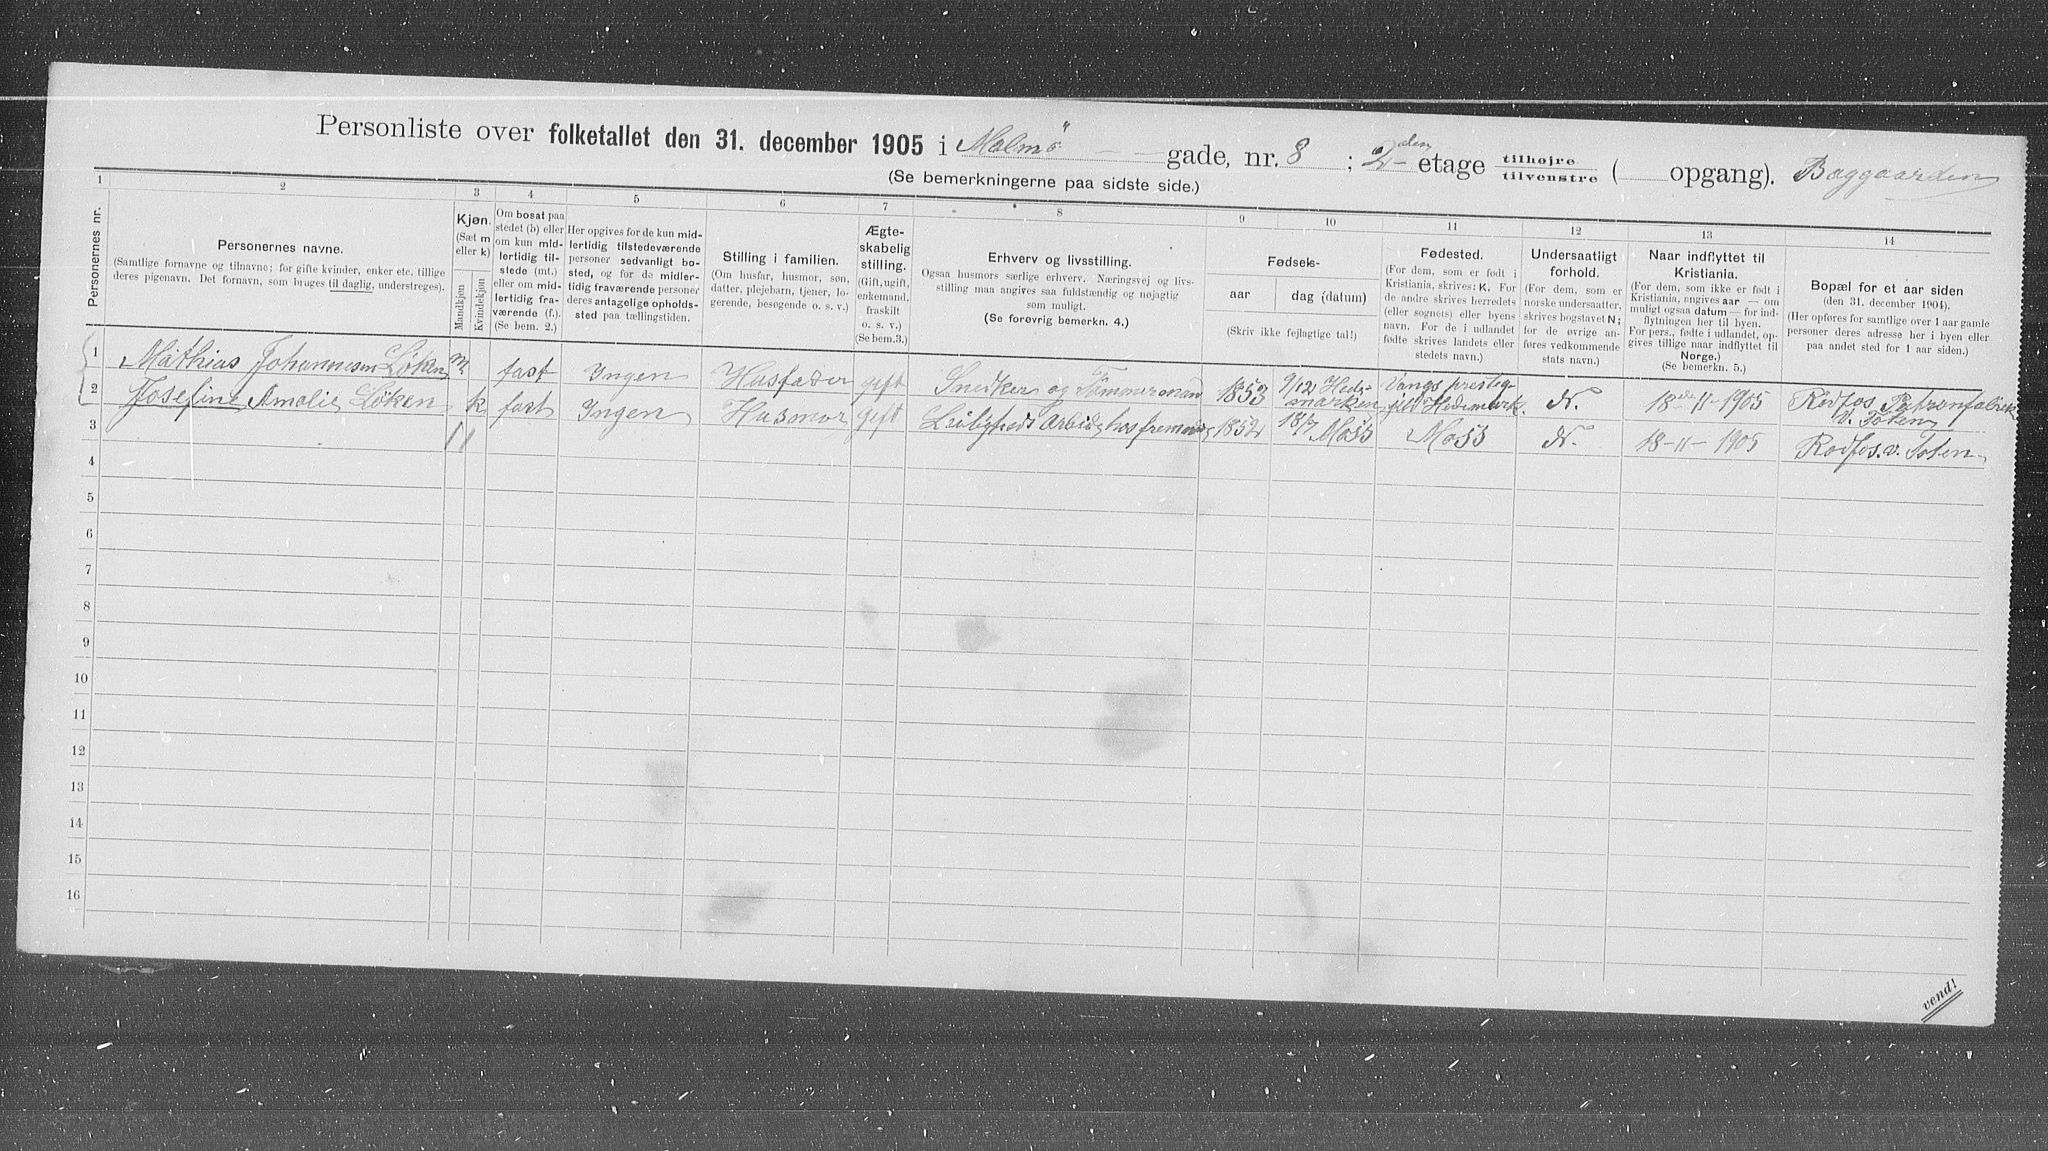 Personliste over folketallet den 31. december 1905 i Malmö gade, nr. 8 ; 2den etage tilhøjre tilvenstre ( opgang). Baggaarden
(Se bemerkningerne paa sidste side.)
1 2 3 4 5 6 7 8 9 10 11 12 13 14
Personernes nr.
Personernes navne.
(Samtlige fornavne og tilnavne; for gifte kvinder, enker etc. tillige
deres pigenavn. Det fornavn, som bruges til daglig, understreges).
Kjøn.
(Sæt m
eller k)
Mandkjøn
Kvindekjøn
Om bosat paa
stedet (b) eller
om kun mid-
lertidig til-
stede (mt.)
eller om mid-
lertidig fra-
værende (f.).
(Se bem. 2.)
Her opgives for de kun mid-
lertidig tilstedeværende
personer sedvanligt bo-
sted, og for de midler-
tidig fraværende personer
deres antagelige opholds-
sted paa tællingstiden.
Stilling i familien.
(Om husfar, husmor, søn,
datter, plejebarn, tjener, lo-
gerende, besøgende o. s. v.)
Ægte-
skabelig
stilling.
(Gift, ugift,
enkemand,
fraskilt
o. s. v.)
(Se bem.3.)
Erhverv og livsstilling.
Ogsaa husmors særlige erhverv. Næringsvej og livs-
stilling maa angives saa fuldstændig og nøjagtig
som muligt.
(Se forøvrig bemerkn. 4.)
Fødsels-
aar
dag (datum)
(Skriv ikke fejlagtige tal!)
Fødested.
(For dem, som er født i
Kristiania, skrives: K. For
de andre skrives herredets
(eller sognets) eller byens
navn. For de i udlandet
fødte skrives landets eller
stedets navn.)
Undersaatligt
forhold.
(For dem, som er
norske undersaatter,
skrives bogstavet N;
for de øvrige an-
føres vedkommende
stats navn.)
Naar indflyttet til
Kristiania.
(For dem, som ikke er født i
Kristiania, angives aar — om
muligt ogsaa datum — for ind-
flytningen her til byen.
For pers., fødte i udlandet, op-
gives tillige naar indflyttet til
Norge.)
(Se bemerkn. 5.)
Bopæl for et aar siden
(den 31. december 1904).
(Her opføres for samtlige over 1 aar gamle
personer deres adresse her i byen eller
paa andet sted for 1 aar siden.)
1 Mathias Johannesen Løken m fast Ingen Husfader gift Snedker og Tömmermand 1853 9/12 Hedemarken Vangs prestegjeld Hedemark. N. 18de 11-1905 Rödfos Patronfabrik
V. Toten
2 Josefine Amalie Løken k fast Ingen Husmor gift gift 1852 18/7 Moss Moss N. 18-11-1905 Rødfos. v. Toten
3
4
5
6
7
8
9
10
11
12
13
14
15
16
vend!